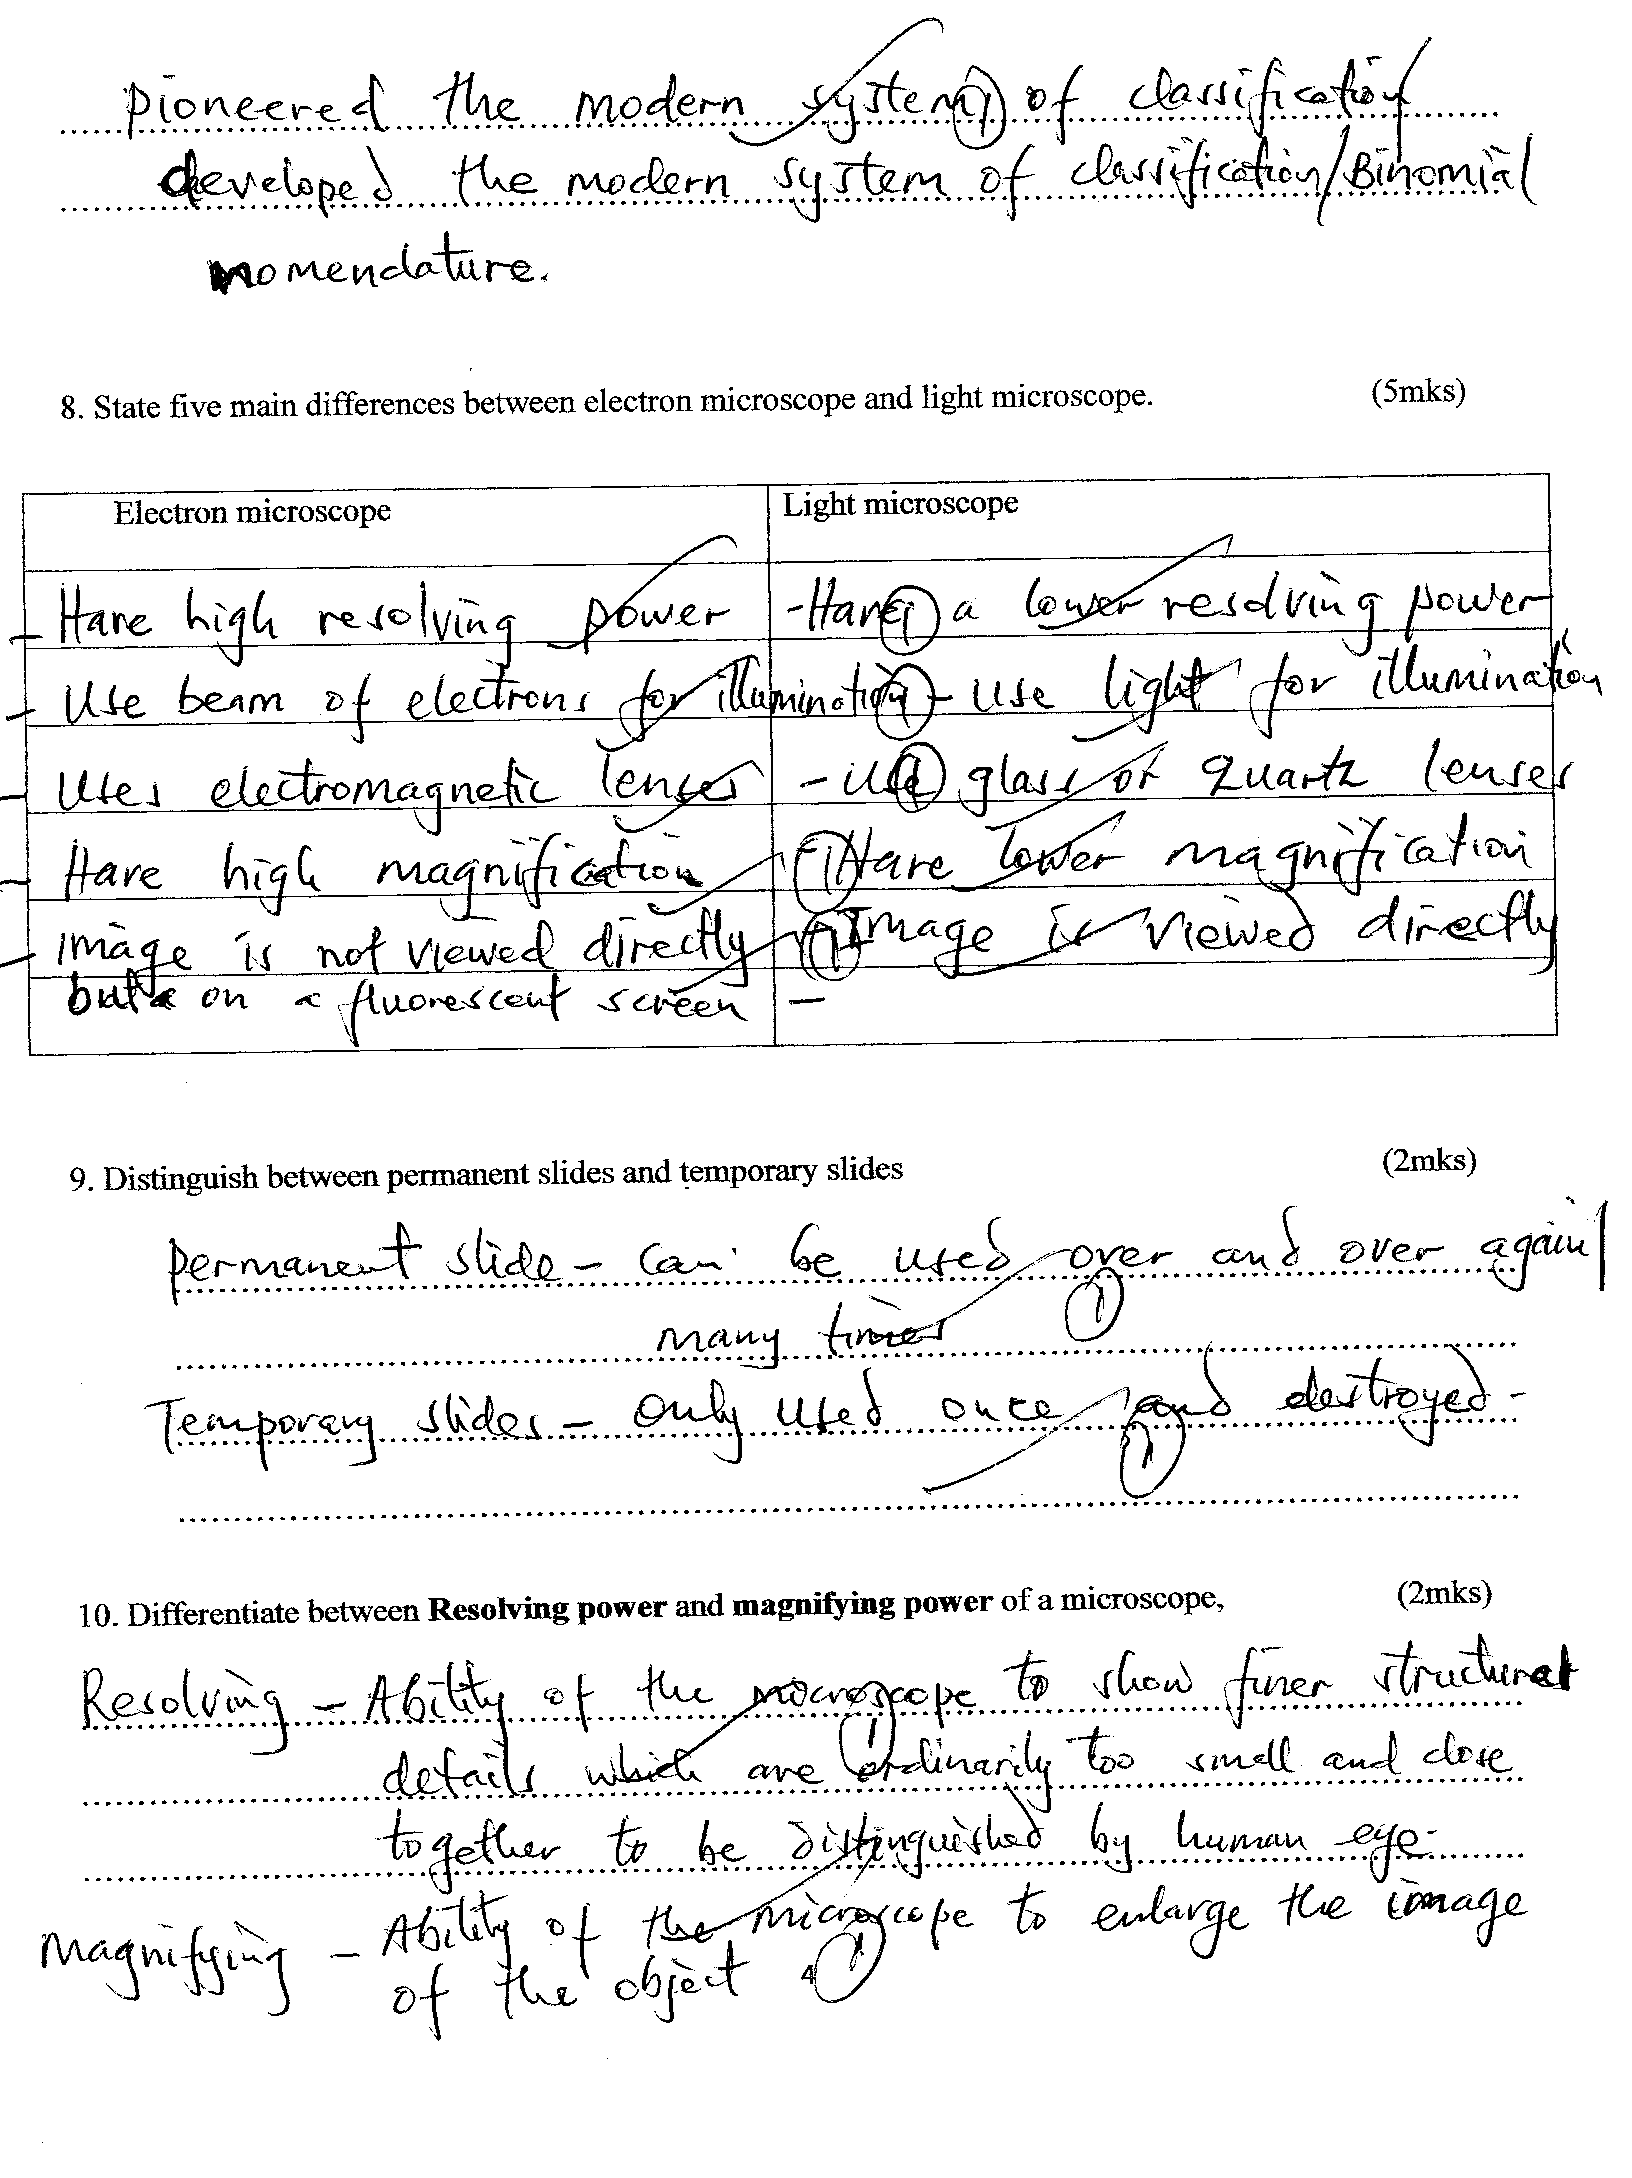 pioneered the modern system ① of classification/
developed the modern system of classification/Binomial
nomenclature.
8. State five main differences between electron microscope and light microscope. (5mks)
Electron microscope Light microscope
- Have high resolving power - Have ① a lower resolving power
- Use beam of electrons for illumination ① - Use light for illumination
- Uses electromagnetic lenses - Use ① glass or quartz lenses
- Have high magnification ① Have lower magnification
- image is not viewed directly ① Image is viewed directly
but on a fluorescent screen -
9. Distinguish between permanent slides and temporary slides (2mks)
permanent slide - can be used over and over again/
many times ①
Temporary slides - only used once and destroyed -
①
10. Differentiate between Resolving power and magnifying power of a microscope, (2mks)
Resolving - Ability of the microscope to show finer structural
details which are ① ordinarily too small and close
together to be distinguished by human eye.
magnifying - Ability of the microscope to enlarge the image
of the object ①
4